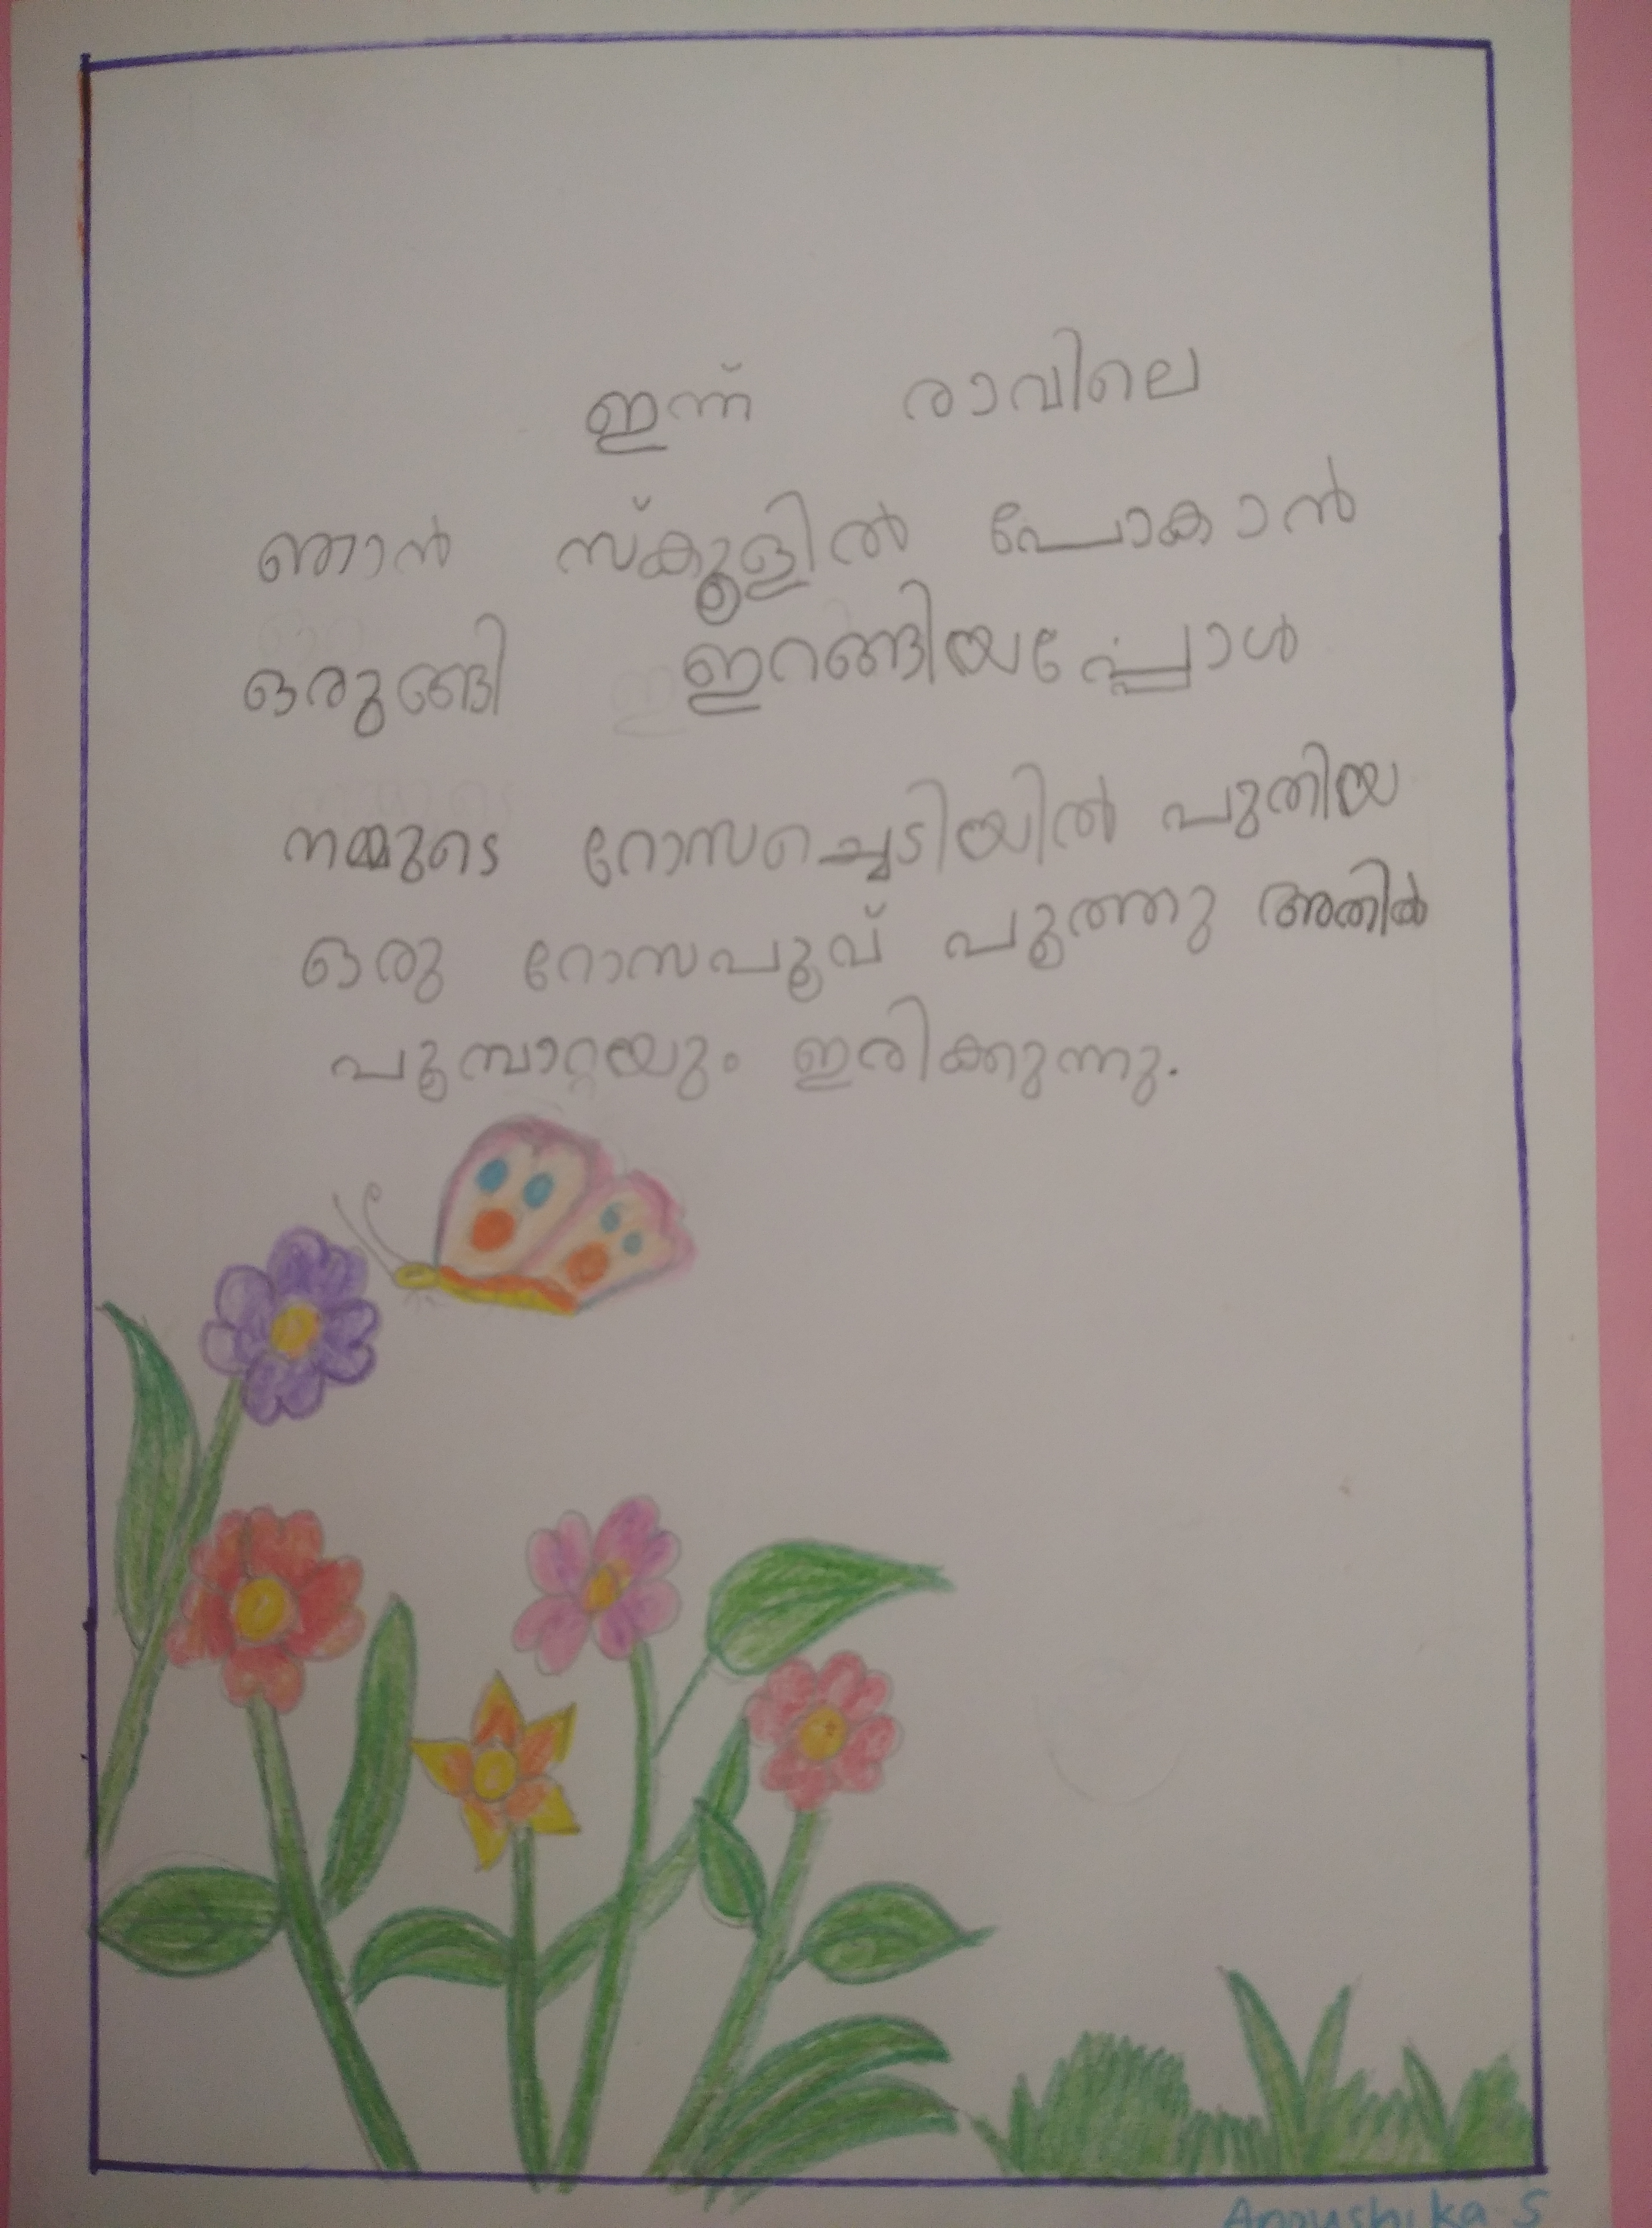 ഇന്ന് രാവിലെ
ഞാൻ സ്കൂളിൽ പോകാൻ
ഒരുങ്ങി ഇറങ്ങിയപ്പോൾ
നമ്മുടെ റോസച്ചെടിയിൽ പുതിയ
ഒരു റോസപൂവ് പൂത്തു അതിൽ
പൂമ്പാറ്റയും ഇരിക്കുന്നു.
Anoushika S